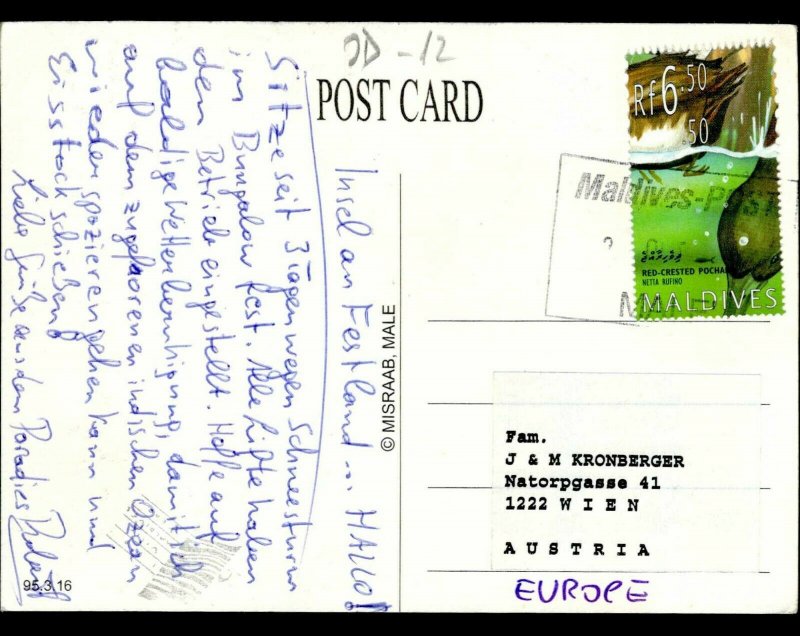 JD-12
POST CARD
Insel an Festland ... HALLO!
Sitze seit 3 Tagen wegen Schneesturm
im Bungalow fest. Alle Lifte haben
den Betrieb eingestellt. Hoffe auf
baldige Wetterberuhigung, damit ich
auf dem zugefrorenen indischen Ozean
wieder spazieren gehen kann und
Eisstock schießen!
Liebe Grüße aus dem Paradies
95.3.16
© MISRAAB, MALE
Rf6.50
.50
Maldives-P
RED-CRESTED POCHA
NETTA RUFINO
MALDIVES
Fam.
J & M KRONBERGER
Natorpgasse 41
1222 W I E N
A U S T R I A
EUROPE